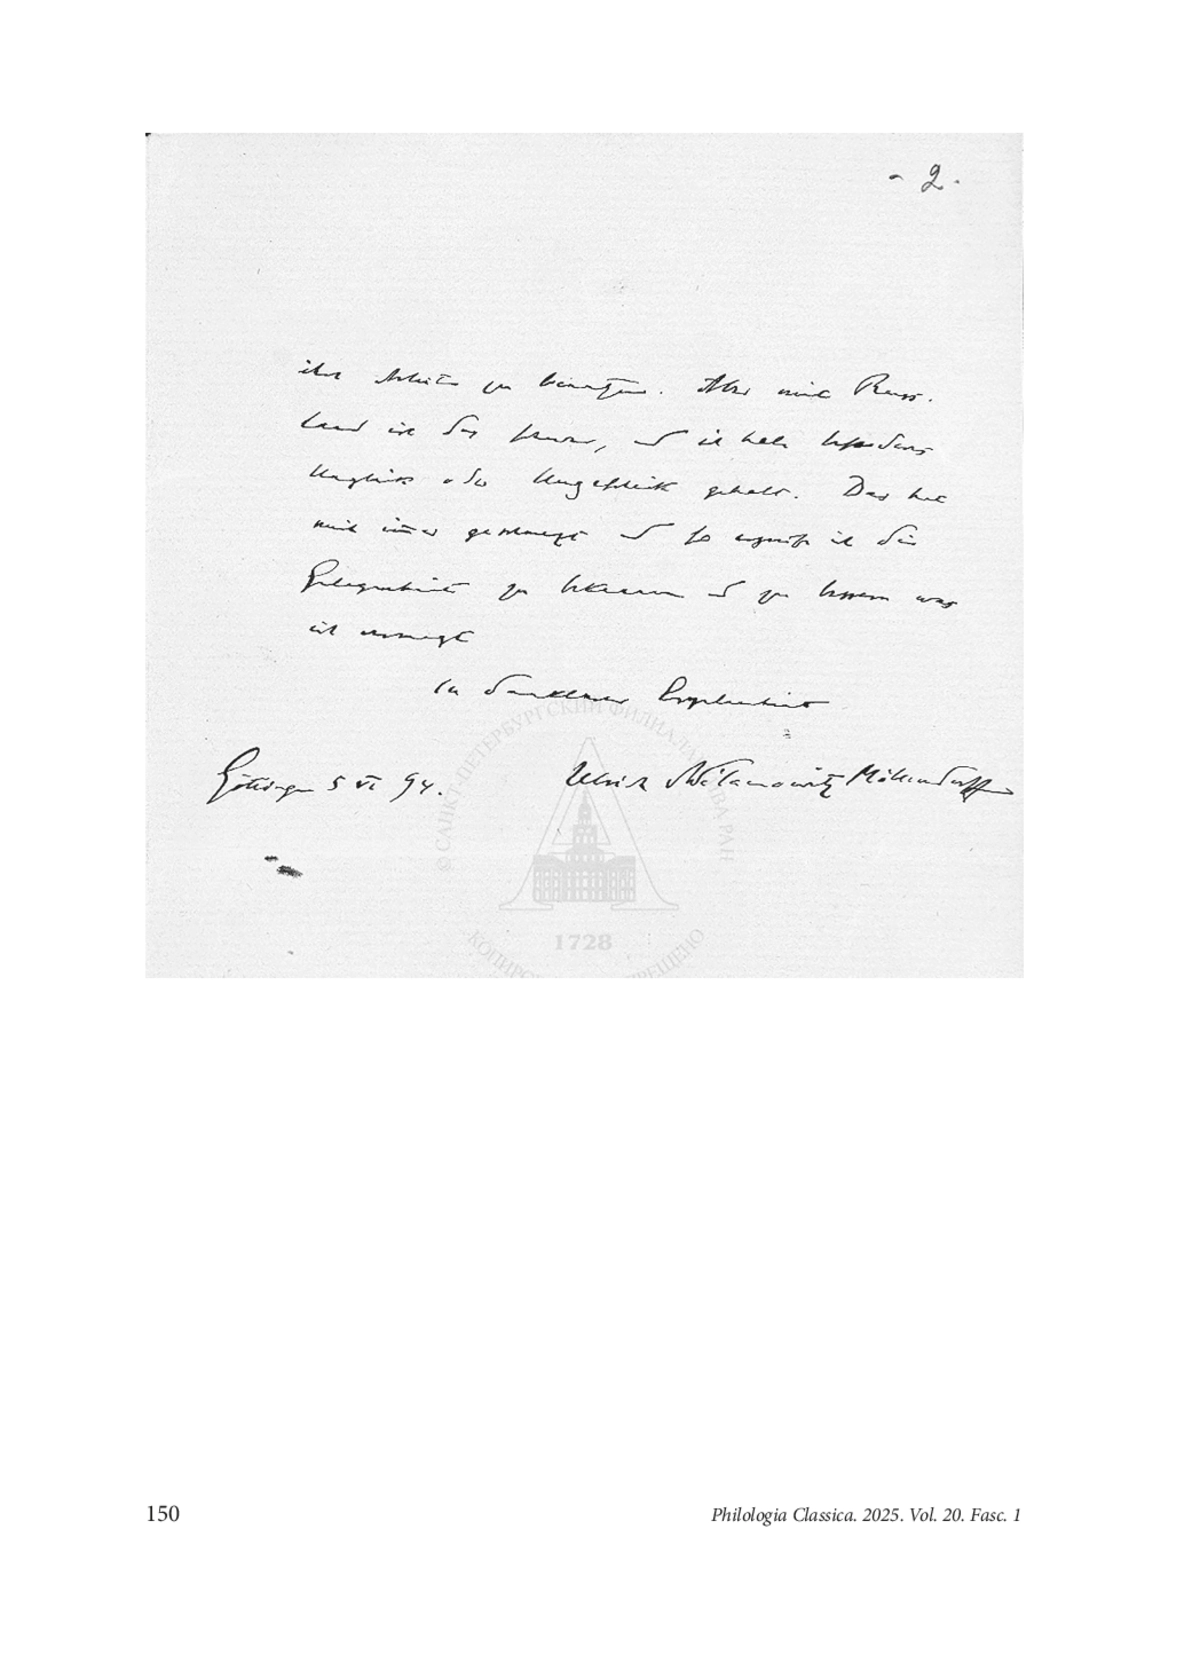 - 2 -
ihre Arbeiten zu benutzen. Aber mit Russ-
land ist das schwer, und ich habe besonders
Unglück oder Ungeschick gehabt. Das hat
mich immer geschmerzt und so ergreife ich die
Gelegenheit zu bekennen und zu bessern was
ich vermag
In dankbarer Ergebenheit
Göttingen 5 VI 94.
Ulrich Wilamowitz Möllendorff
© САНКТ-ПЕТЕРБУРГСКИЙ ФИЛИАЛ АРХИВА РАН
1728
150
Philologia Classica. 2025. Vol. 20. Fasc. 1